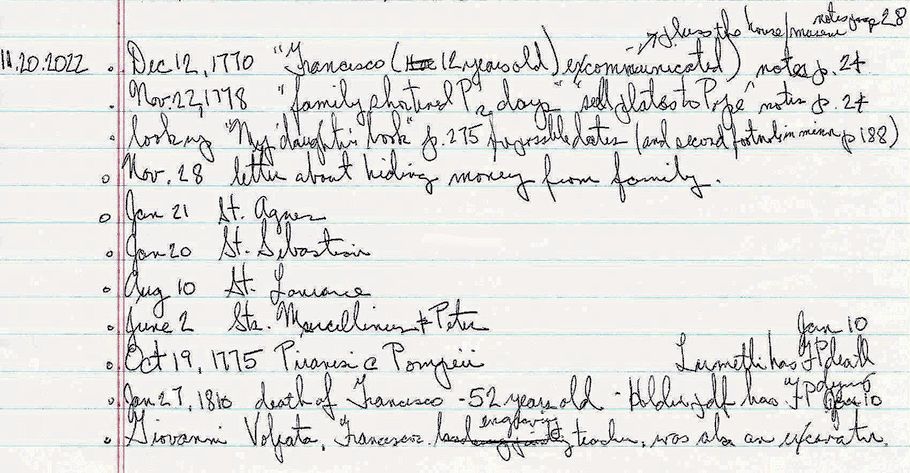 notes p. 28
→ plus the house/museum
11.20.2022 • Dec 12, 1770 "Francisco (12 years old) excommunicated) notes p. 24
• Nov. 22, 1778 "family shortened P's days" "sell plates to Pope" notes p. 24
• look up "My daughter's book" p. 275 for possible dates (and second footnote in p 188)
• Nov. 28 letter about hiding money from family.
• Jan 21 St. Agnes
• Jan 20 St. Sebastian
• Aug 10 St. Lawrence
• June 2 Sts. Marcellinus & Peter
Jan 10
• Oct 19, 1775 Piranesi @ Pompeii has FP death
• Jan 27, 1810 death of Francesco - 52 years old - .pdf has FP dying Jan 10
• Giovanni Volpato, Francesco's engraving teacher, was also an excavator.